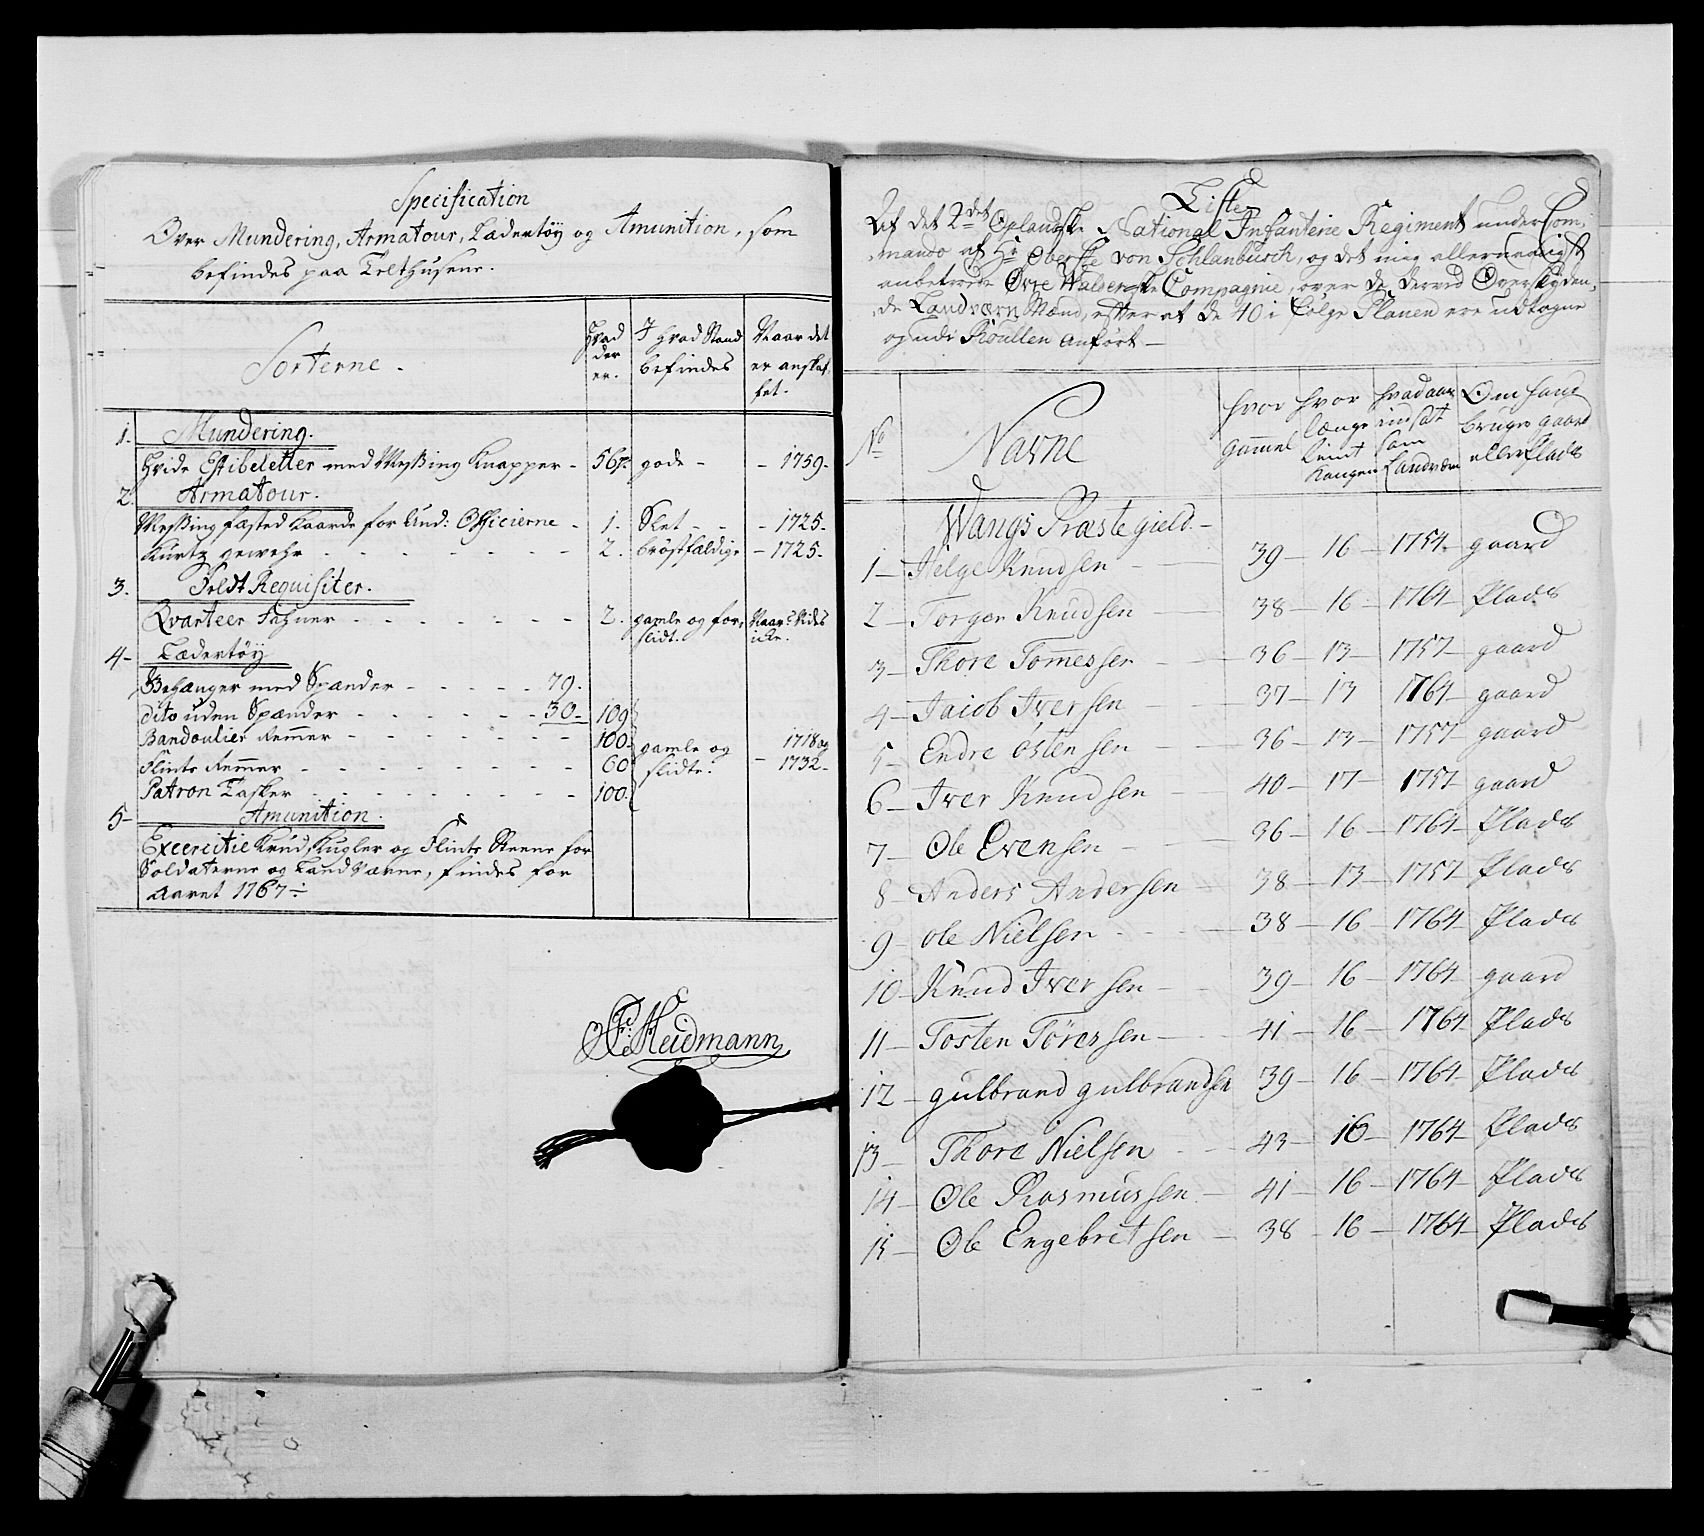 Specification
Over Mundering, Armatour, Lædertøy og Amunition, som
befindes paa Telthusene.
Sorterne.
Hvad der er.
I hvad Stand befindes
Naar det er anskaffet.
1. Mundering.
Hvide Stibeletter med Messing Knapper - 56 p. gode - - 1759.
2. Armatour.
Messing fæsted Kaarde for Und: Officierne - 1. Slet - - - 1725.
Kurtz gewehr - - - 2. brøstfældige - 1725.
3. Feldt Requisiter.
Qvarteer Fahner - - - 2. gamle og for, slidt. Naar Vides icke.
4 - Lædertøy
Behænger med Spænder - - - 79.
dito uden Spænder - - - 30 - 109
Bandoulier Remmer - - - 100. gamle og slidte. - 1718 og 1732.
Flinte Remmer - - - 60
Patron Tasker - - - 100.
5 - Amunition.
Excercitie Krud, Kugler og Flinte Steene for
Soldaterne og Land Værne, findes for
Aaret 1767 ÷
Heidmann
Liste
Af det 2det Oplandske National Infanterie Regiment under Com,
mando af Hr. Oberste von Schlanbusch, og det mig allernaadigst
anbetroede Øvre Walderske Compagnie, over de derved Overskyden,
de Landværn Mænd, efter at de 40 i Følge Planen ere udtagne
og udi Roullen anført -
No
Navne
hvor gammel
hvor længe tient Kongen
hvad aar indsat som Landværn
Om hand bruger gaard eller Plads
Wangs Præstegield. -
1 - Helge Knudsen - 39 - 16 - 1754 - gaard
2 - Torger Knudsen - 38 - 16 - 1764 - Plads
3 - Thore Tommessen - 36 - 13 - 1757 - gaard
4 - Jacob Iversen - 37 - 13 1764 - gaard
5 - Endre Østensen - 36 - 13 - 1757 - gaard
6 - Iver Knudsen - 40 - 17 - 1757 gaard
7 - Ole Evensen - 36 - 16 - 1764 - Plads
8 - Anders Andersen - 38 - 13 - 1757 - Plads
9 - Ole Nielsen - 38 - 16 - 1764 - Plads
10 - Knud Iversen - 39 - 16 - 1764 - gaard
11 - Tosten Törersen - 41 - 16 - 1764 Plads
12 - gulbrand gulbrandsen 39 - 16 - 1764 - Plads
13 - Thore Nielsen - 43 - 16 - 1764 - Plads
14 - Ole Rasmussen - 41 - 16 - 1764 - Plads
15 - Ole Engebretsen - 38 - 16 - 1764 - Plads